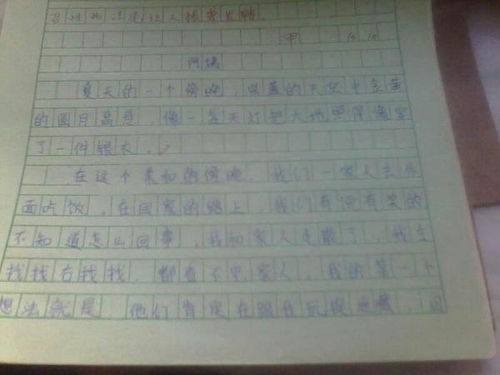 甲
夏天的一个傍晚，蔚蓝的天空中金黄
的圆月高悬，像一盏天灯把大地照得像穿
了一件银衣。
在这个柔和的傍晚，我们一家人去外
面吃饭，在回家的路上，我们有说有笑的
不知道怎么回事，我和家人走散了，我左
找找右找找，都看不见家人，我的第一个
想法就是 他们肯定在跟我玩捉迷藏，因